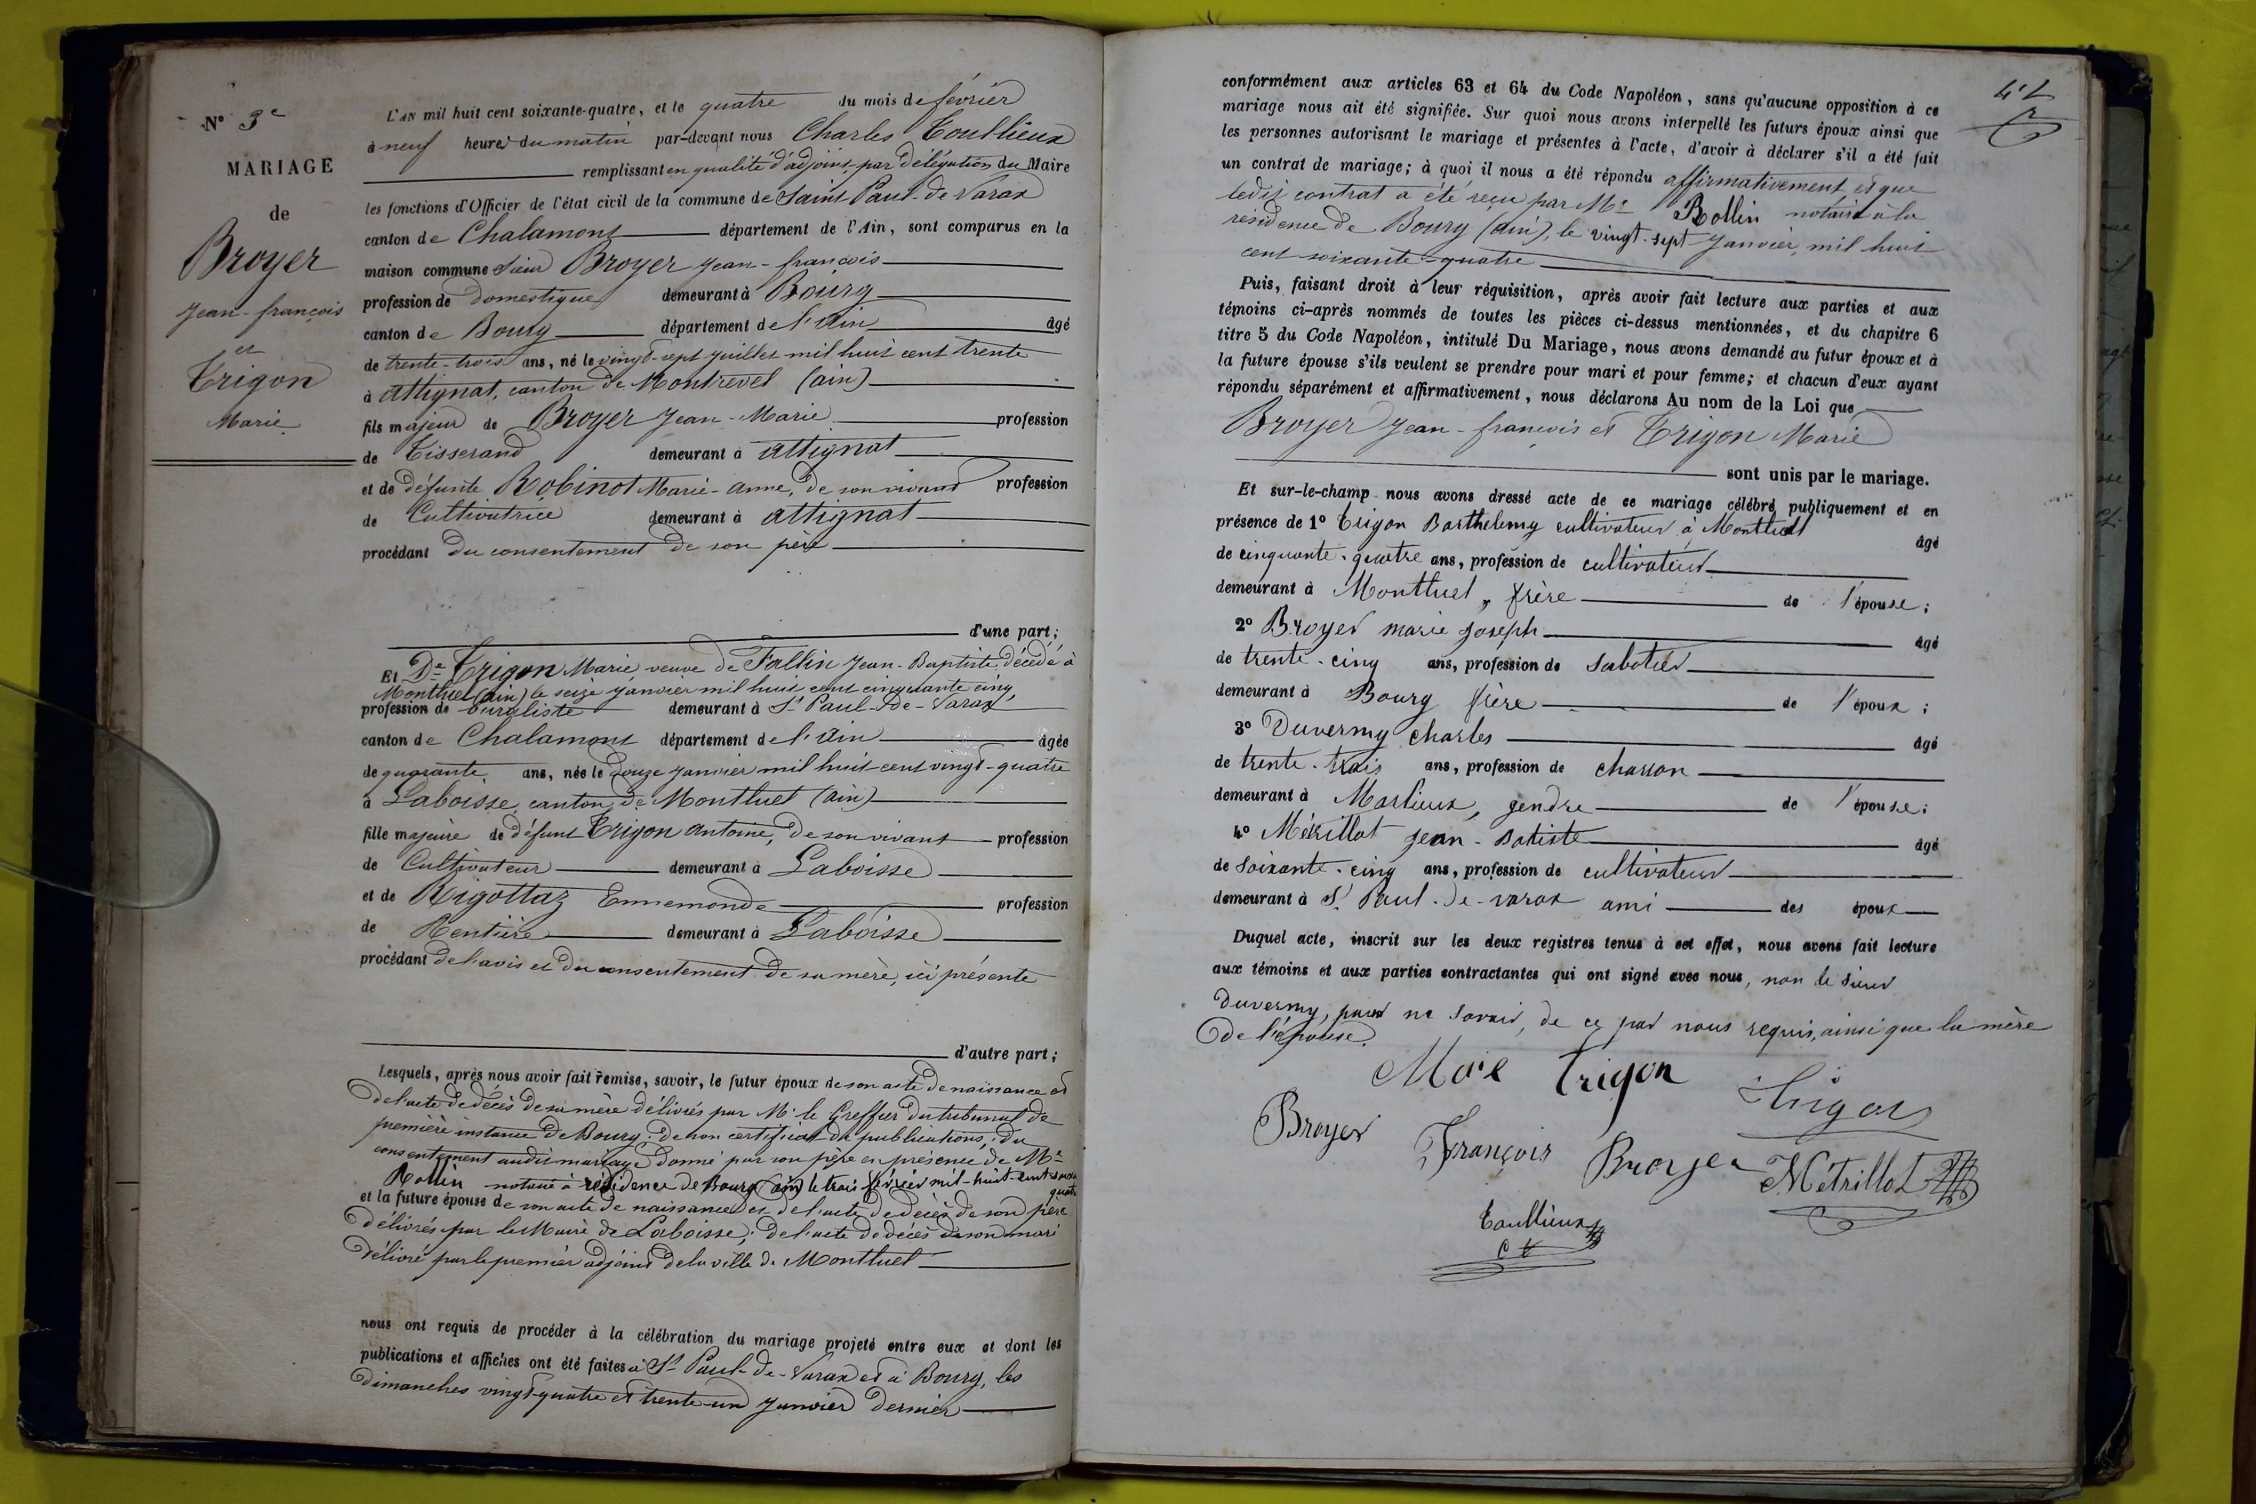 N° 3e
MARIAGE
de
Broyer
Jean-françois
et
Trigon
Marie
L'AN mil huit cent soixante-quatre, et le quatre du mois de février
à neuf heures du matin par-devant nous Charles Toullieux
remplissant en qualité d'adjoint, par délégation du Maire
les fonctions d'Officier de l'état civil de la commune de Saint Paul-de Varax
canton de Chalamont département de l'Ain, sont comparus en la
maison commune Sieur Broyer Jean-françois
profession de domestique demeurant à Bourg
canton de Bourg département de l'ain âgé
de trente-trois ans, né le vingt-sept juillet mil huit cent trente
à attignat, canton de Montrevel (ain)
fils majeur de Broyer Jean-Marie profession
de Tisserand demeurant à attignat
et de défunte Robinot Marie-anne, de son vivant profession
de Cultivatrice demeurant à attignat
procédant du consentement de son père
d'une part;
Et De Trigon Marie veuve de Fallin Jean-Baptiste, décédé à
Montluel (ain) le seize janvier mil huit cent cinquante cinq,
profession de buraliste demeurant à St Paul-de-Varax
canton de Chalamont département de l'ain âgée
de quarante ans, née le douze janvier mil huit cent vingt-quatre
à Laboisse canton de Montluel (ain)
fille majeure de défunt Trigon antoine, de son vivant profession
de Cultivateur demeurant à Laboisse
et de Rigottaz Ennemonde profession
de Rentière demeurant à Laboisse
procédant de l'avis et du consentement de sa mère, ici présente
d'autre part;
Lesquels, après nous avoir fait remise, savoir, le futur époux de son acte de naissance et
de l'acte de décès de sa mère délivrés par Mr le Greffier du tribunal de
première instance de Bourg; de son certificat de publications; du
consentement audit mariage donné par son père en présence de Me
Rollin notaire à résidence de Bourg (ain) le trois février mil-huit-cent soixante
quatre
et la future épouse de son acte de naissance et de l'acte de décès de son père
délivrés par le Maire de Laboisse; de l'acte de décès de son mari
délivré par le premier adjoint de la ville de Montluel
nous ont requis de procéder à la célébration du mariage projeté entre eux et dont les
publications et affiches ont été faites à St Paul-de-Varax et à Bourg, les
dimanches vingt-quatre et trente-un janvier dernier
conformément aux articles 63 et 64 du Code Napoléon, sans qu'aucune opposition à ce
mariage nous ait été signifiée. Sur quoi nous avons interpellé les futurs époux ainsi que
les personnes autorisant le mariage et présentes à l'acte, d'avoir à déclarer s'il a été fait
un contrat de mariage; à quoi il nous a été répondu affirmativement et que
ledit contrat a été reçu par Me Rollin notaire à la
résidence de Bourg (ain), le vingt-sept Janvier, mil huit
cent soixante-quatre
Puis, faisant droit à leur réquisition, après avoir fait lecture aux parties et aux
témoins ci-après nommés de toutes les pièces ci-dessus mentionnées, et du chapitre 6
titre 5 du Code Napoléon, intitulé Du Mariage, nous avons demandé au futur époux et à
la future épouse s'ils veulent se prendre pour mari et pour femme; et chacun d'eux ayant
répondu séparément et affirmativement, nous déclarons Au nom de la Loi que
Broyer Jean-françois et Trigon Marie
sont unis par le mariage.
Et sur-le-champ nous avons dressé acte de ce mariage célébré publiquement et en
présence de 1° Trigon Barthelemy cultivateur à Montluel
âgé
de cinquante-quatre ans, profession de cultivateur
demeurant à Montluel, frère de l'épouse;
2° Broyer marie Joseph âgé
de trente-cinq ans, profession de Sabotier
demeurant à Bourg frère de l'époux;
3° Duvermy Charles âgé
de trente-trois ans, profession de charron
demeurant à Marlieux, gendre de l'épouse;
4° Métrillot Jean-Batiste âgé
de soixante-cinq ans, profession de cultivateur
demeurant à St Paul-de-varax ami des époux
Duquel acte, inscrit sur les deux registres tenus à cet effet, nous avons fait lecture
aux témoins et aux parties contractantes qui ont signé avec nous, non le sieur
duvermy, pour ne savoir, de ce par nous requis, ainsi que la mère
de l'épouse.
Marie Trigon
Trigon
Broyer François Broyer Métrillot
Toullieux